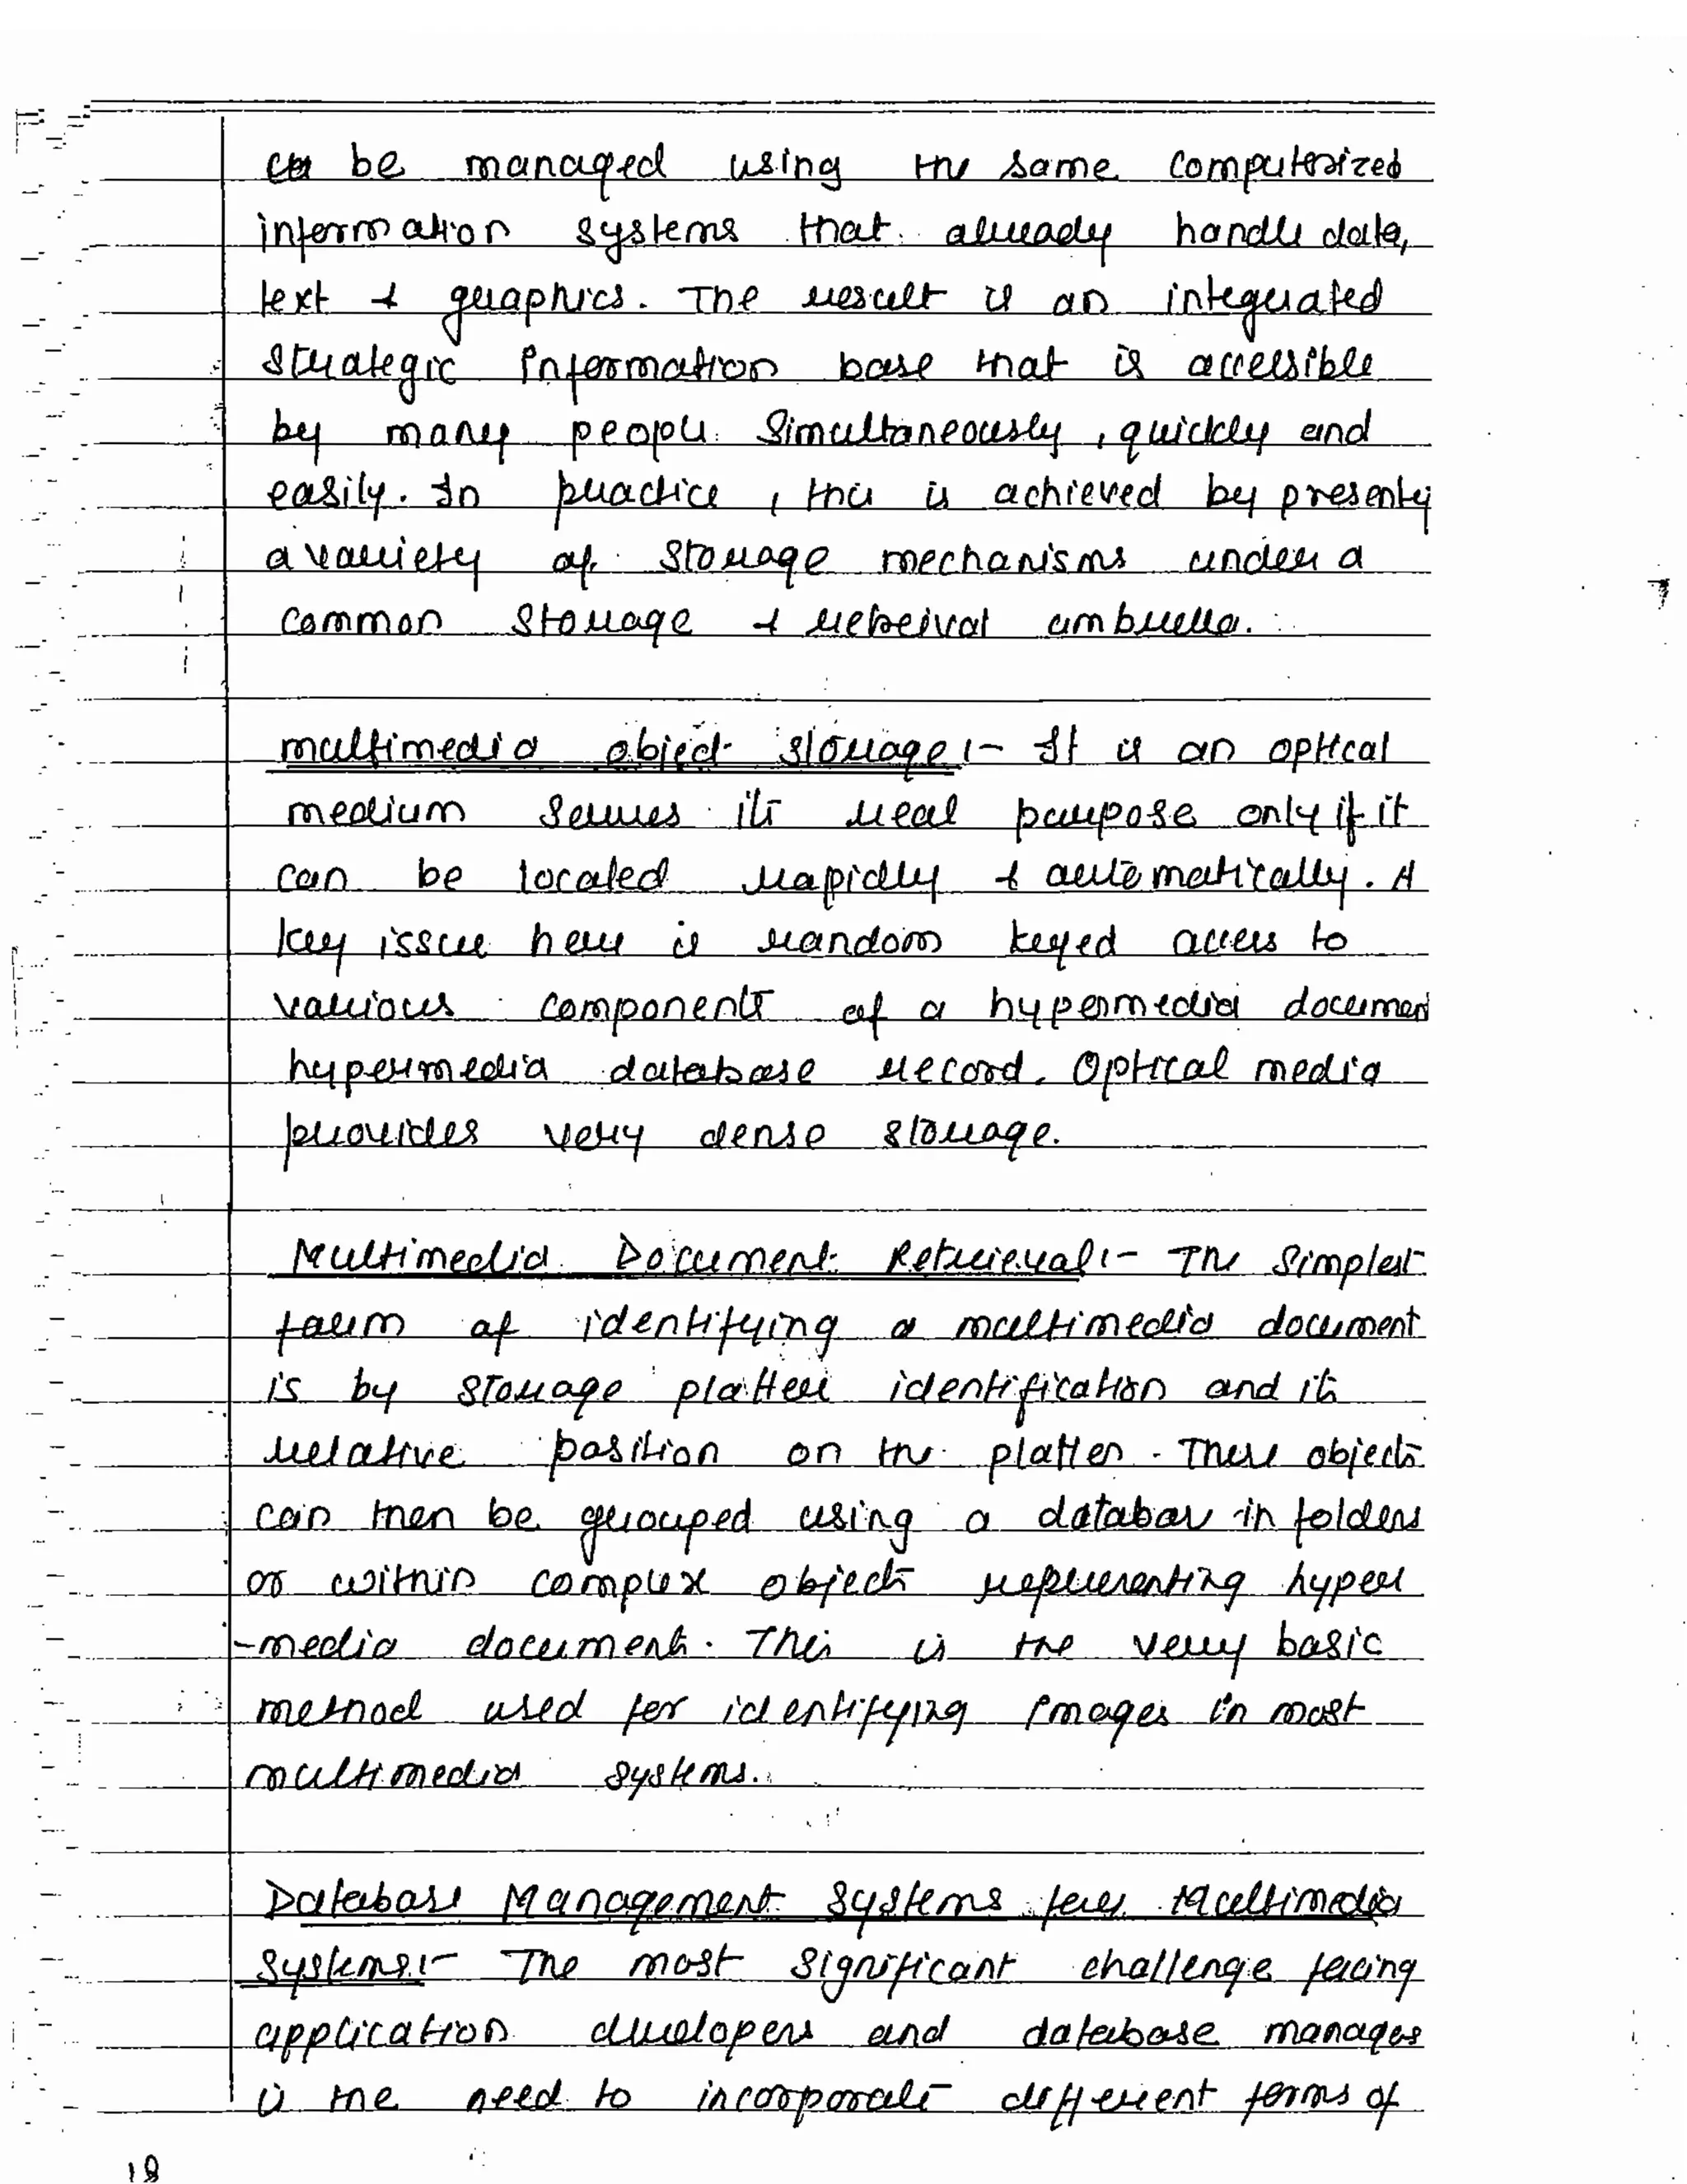 be managed using the same computerized
information systems that already handle data,
text & graphics. The result is an integrated
strategic information base that is accessible
by many people simultaneously, quickly and
easily. In practice, this is achieved by presentg
a variety of storage mechanisms under a
common storage & retreival umbrella.
multimedia object storage :- It is an optical
medium serves its real purpose only if it
can be located rapidly & automatically. A
key issue here is random keyed access to
various components of a hypermedia documen
hypermedia database record. Optical media
provides very dense storage.
Multimedia Document Retrieval :- The simplest
form of identifying a multimedia document
is by storage platter identification and its
relative position on the platter. These objects
can then be grouped using a database in folders
or within complex objects representing hyper
-media documents. This is the very basic
method used for identifying images in most
multimedia systems.
Database Management Systems for Multimedia
Systems :- The most significant challenge facing
application developers and database manages
is the need to incorporate different forms of
18